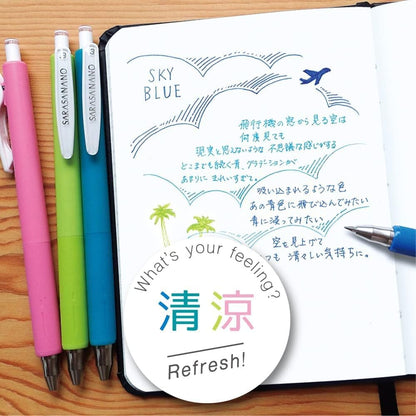 SARASA NANO
SARASA NANO
SKY
BLUE
飛行機の窓から見る空は
何度見ても
現実と思えないような不思議な感じがする
どこまでも続く青、グラデーションが
あまりにきれいすぎて。
吸い込まれるような色
あの青色に飛び込んでみたい
青に浸ってみたい
空を見上げて
つも 清々しい気持ちに。
What's your feeling?
清涼
Refresh!